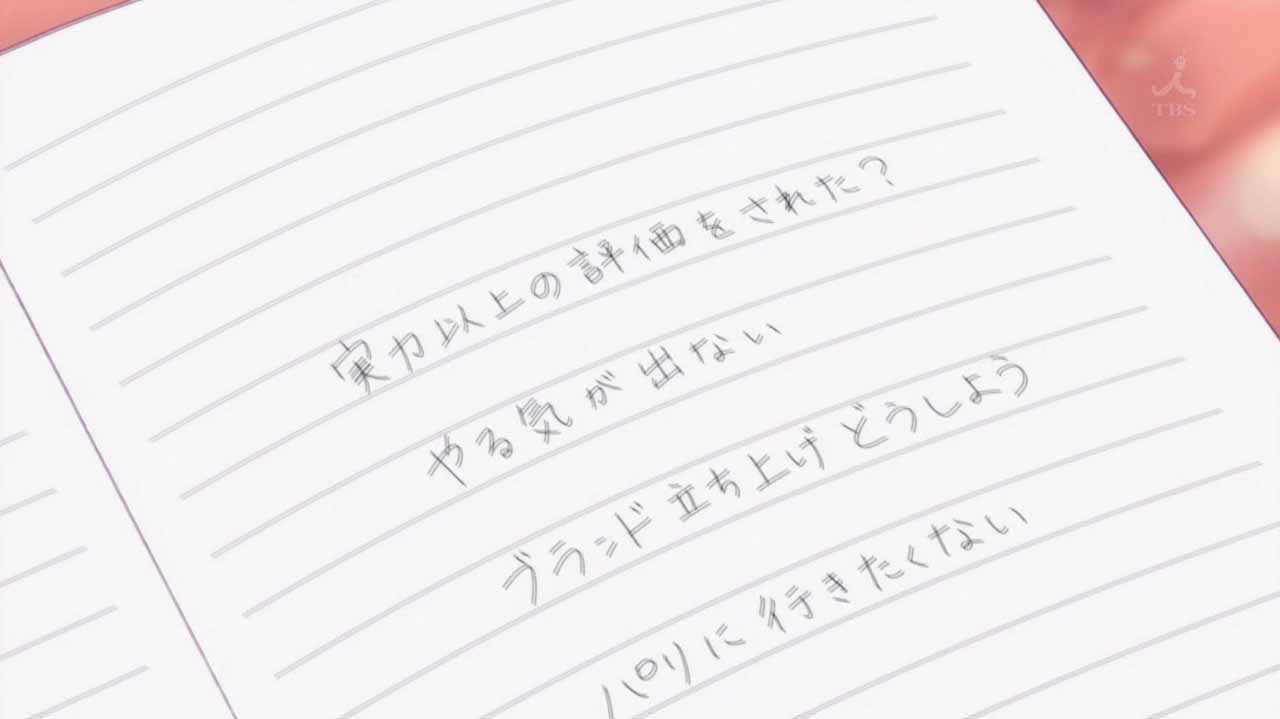 TBS
実力以上の評価をされた？
やる気が出ない
ブランド立ち上げ どうしよう
パリに行きたくない